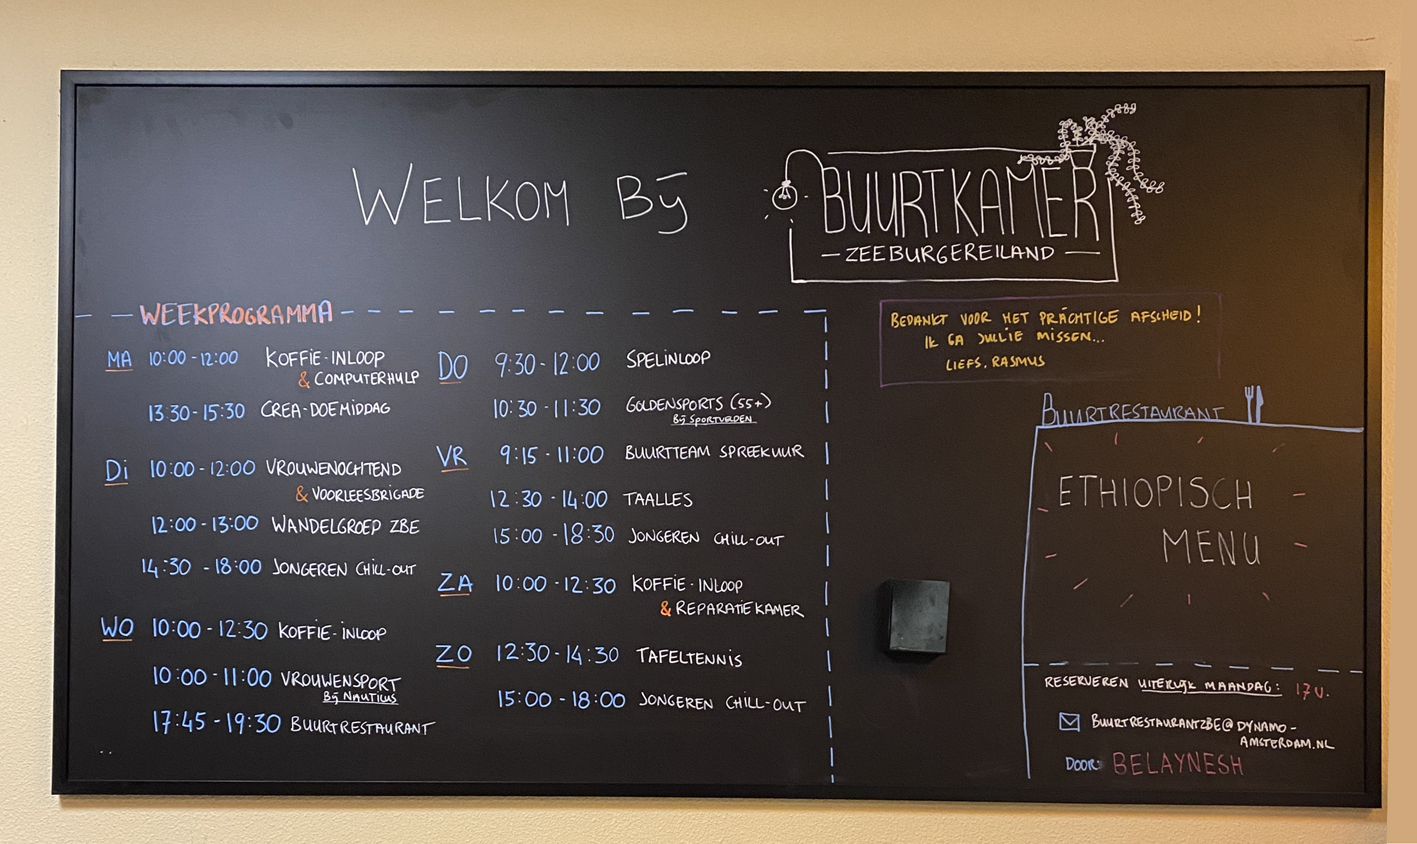 WELKOM BIJ
BUURTKAMER
- ZEEBURGEREILAND -
WEEKPROGRAMMA
MA 10:00 - 12:00 KOFFIE-INLOOP
& COMPUTERHULP
13:30 - 15:30 CREA-DOEMIDDAG
DI 10:00 - 12:00 VROUWENOCHTEND
& VOORLEESBRIGADE
12:00 - 13:00 WANDELGROEP ZBE
14:30 - 18:00 JONGEREN CHILL-OUT
WO 10:00 - 12:30 KOFFIE-INLOOP
10:00 - 11:00 VROUWENSPORT
BIJ NAUTILUS
17:45 - 19:30 BUURTRESTAURANT
DO 9:30 - 12:00 SPELINLOOP
10:30 - 11:30 GOLDENSPORTS (55+)
BIJ SPORTVELDEN
VR 9:15 - 11:00 BUURTTEAM SPREEKUUR
12:30 - 14:00 TAALLES
15:00 - 18:30 JONGEREN CHILL-OUT
ZA 10:00 - 12:30 KOFFIE-INLOOP
& REPARATIEKAMER
ZO 12:30 - 14:30 TAFELTENNIS
15:00 - 18:00 JONGEREN CHILL-OUT
BEDANKT VOOR HET PRACHTIGE AFSCHEID!
IK GA JULLIE MISSEN...
LIEFS, RASMUS
BUURTRESTAURANT
ETHIOPISCH
MENU
RESERVEREN UITERLIJK MAANDAG: 17 U.
BUURTRESTAURANTZBE@DYNAMO-
AMSTERDAM.NL
DOOR: BELAYNESH